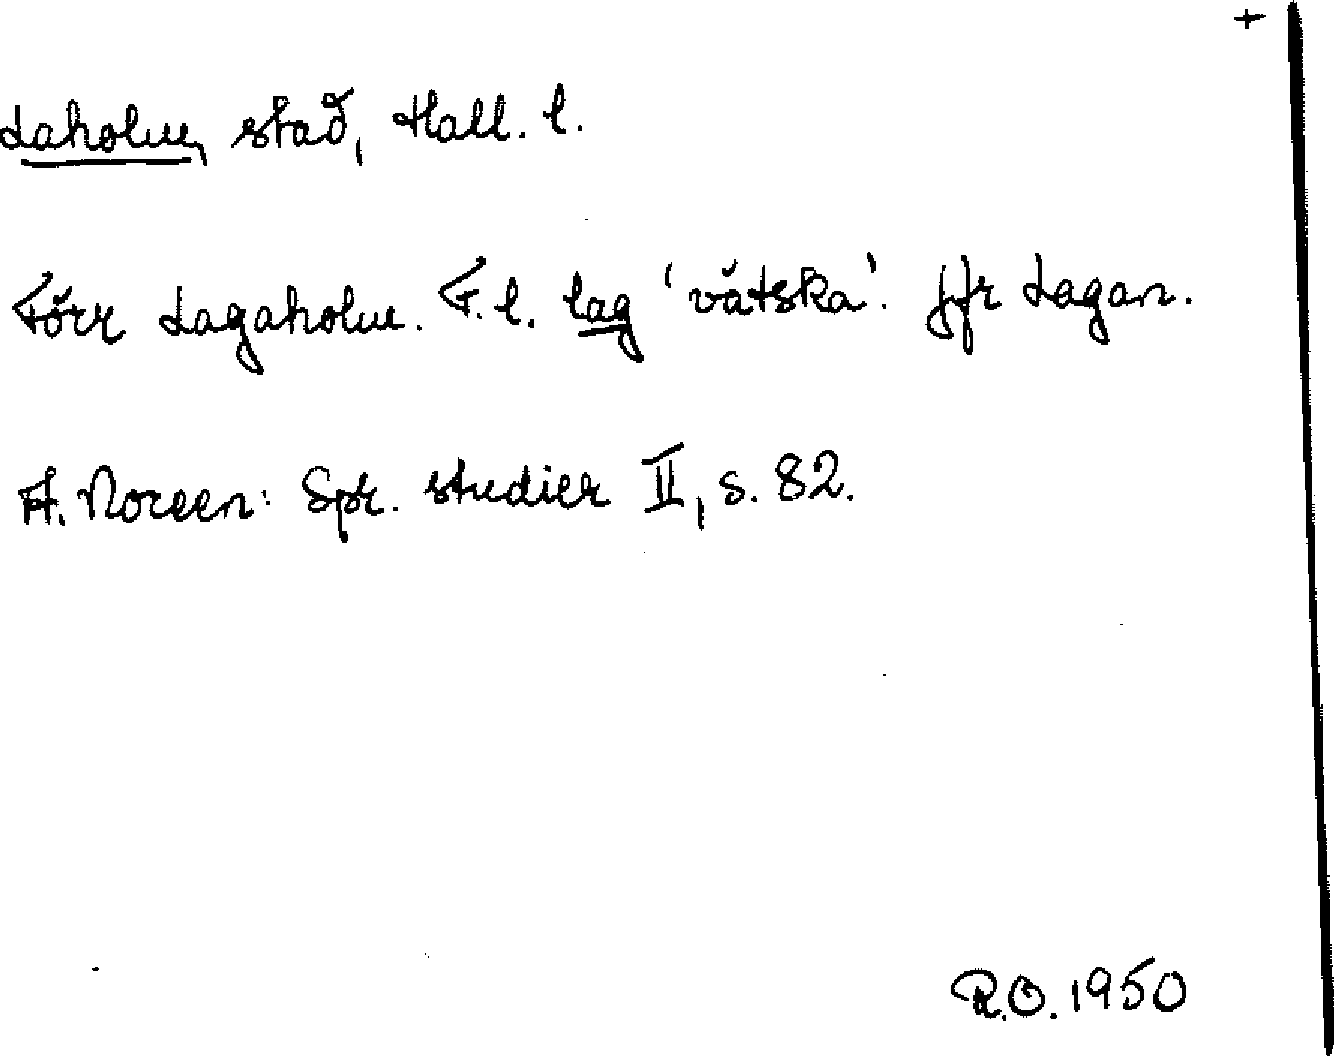 +
Laholm, stad, Hall. l.
Förr Lagaholm. F. l. lag 'vätska'. Jfr Lagan.
A. Noreen: Spr. studier II, s. 82.
R.O. 1950